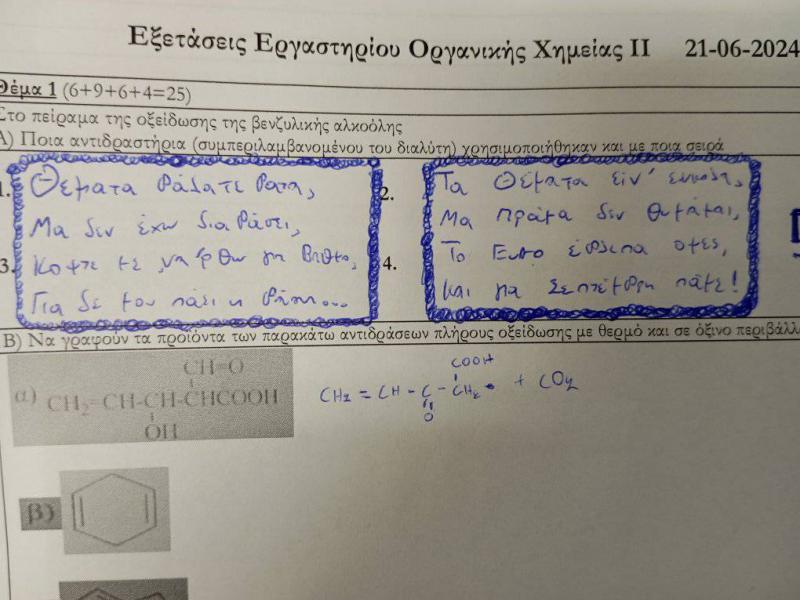 Εξετάσεις Εργαστηρίου Οργανικής Χημείας ΙΙ 21-06-2024
Θέμα 1 (6+9+6+4=25)
Στο πείραμα της οξείδωσης της βενζυλικής αλκοόλης
Α) Ποια αντιδραστήρια (συμπεριλαμβανομένου του διαλύτη) χρησιμοποιήθηκαν και με ποια σειρά
1. Θέματα βάλατε βατά,
Μα δεν έχω διαβάσει,
3. κοφτε με, να 'ρθω για
Για δε μου πάει η φάση...
2. Τα θέματα ειν' εύκολα,
Μα πράμα δεν θυμάμαι,
Το Euro έβλεπα οψές,
4. και για Σεπτέμβρη πάμε!
Β) Να γραφούν τα προϊόντα των παρακάτω αντιδράσεων πλήρους οξείδωσης με θερμό και σε όξινο περιβάλλ
CH=O
α) CH2=CH-CH-CHCOOH
OH
COOH
CH2 = CH - C - CH2 + CO2
O
β)